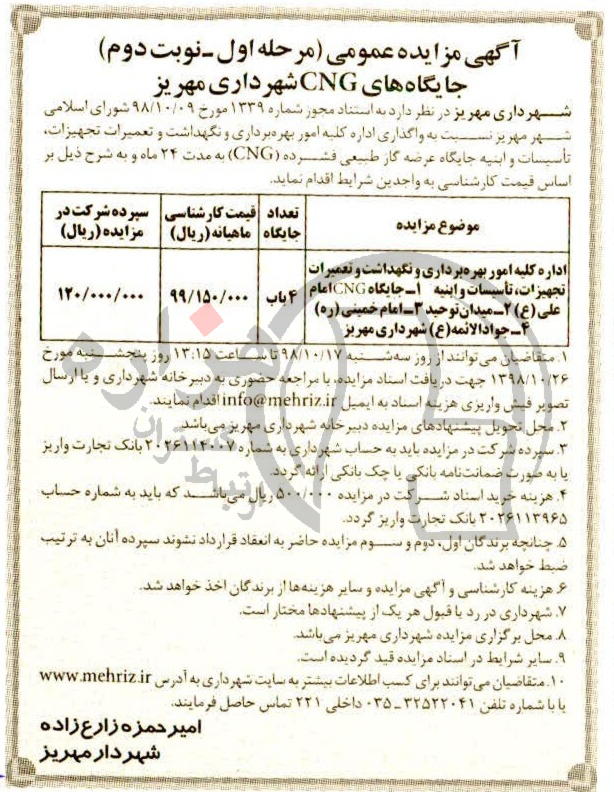 آگهی مزایده عمومی (مرحله اول ـ نوبت دوم)
جایگاه‌های CNG شهرداری مهریز
شـهرداری مهریز در نظر دارد به استناد مجوز شماره ۱۳۳۹ مورخ ۹۸/۱۰/۰۹ شورای اسلامی
شـهر مهریز نسـبت به واگذاری اداره کلیه امور بهره‌برداری و نگهداشت و تعمیرات تجهیزات،
تأسیسات و ابنیه جایگاه عرضه گاز طبیعی فشـرده (CNG) به مدت ۲۴ ماه و به شرح ذیل بر
اساس قیمت کارشناسی به واجدین شرایط اقدام نماید.
موضوع مزایده
تعداد جایگاه
قیمت کارشناسی ماهیانه (ریال)
سپرده شرکت در مزایده (ریال)
اداره کلیه امور بهره‌برداری و نگهداشت و تعمیرات
تجهیزات، تأسیسات و ابنیه ۱ـ جایگاه CNG امام
علی (ع) ۲ـ میدان توحید ۳ـ امام خمینی (ره)
۴ـ جوادالائمه (ع) شهرداری مهریز
۴ باب
۹۹/۱۵۰/۰۰۰
۱۲۰/۰۰۰/۰۰۰
۱. متقاضیان می‌توانند از روز سه‌شنبه ۹۸/۱۰/۱۷ تا سـاعت ۱۳:۱۵ روز پنجشـنبه مورخ
۱۳۹۸/۱۰/۲۶ جهت دریافت اسناد مزایده، با مراجعه حضوری به دبیرخانه شهرداری و یا ارسال
تصویر فیش واریزی هزینه اسناد به ایمیل info@mehriz.ir اقدام نمایند.
۲. محل تحویل پیشنهادهای مزایده دبیرخانه شهرداری مهریز می‌باشد.
۳. سپرده شرکت در مزایده باید به حساب شهرداری به شماره ۲۰۲۶۱۱۴۰۰۷ بانک تجارت واریز
یا به صورت ضمانت‌نامه بانکی یا چک بانکی ارائه گردد.
۴. هزینه خرید اسناد شـرکت در مزایده ۵۰۰/۰۰۰ ریال می‌باشـد که باید به شماره حساب
۲۰۲۶۱۱۳۹۶۵ بانک تجارت واریز گردد.
۵. چنانچه برندگان اول، دوم و سـوم مزایده حاضر به انعقاد قرارداد نشوند سپرده آنان به ترتیب
ضبط خواهد شد.
۶. هزینه کارشناسی و آگهی مزایده و سایر هزینه‌ها از برندگان اخذ خواهد شد.
۷. شهرداری در رد یا قبول هر یک از پیشنهادها مختار است.
۸. محل برگزاری مزایده شهرداری مهریز می‌باشد.
۹. سایر شرایط در اسناد مزایده قید گردیده است.
۱۰. متقاضیان می‌توانند برای کسب اطلاعات بیشتر به سایت شهرداری به آدرس www.mehriz.ir
یا با شماره تلفن ۳۲۵۲۲۰۴۱ـ۰۳۵ داخلی ۲۲۱ تماس حاصل فرمایند.
امیرحمزه زارع‌زاده
شهردار مهریز